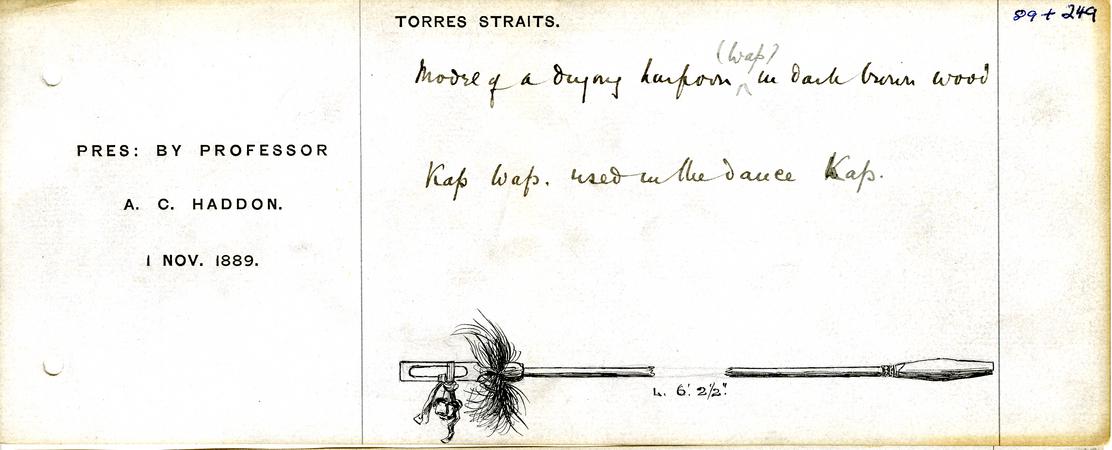 TORRES STRAITS.
89+249
(Wap)
Model of a dugong harpoon ^ in dark brown wood
PRES: BY PROFESSOR
Kap Wap. used in the dance Kap.
A. C. HADDON.
1 NOV. 1889.
L. 6'. 2½".